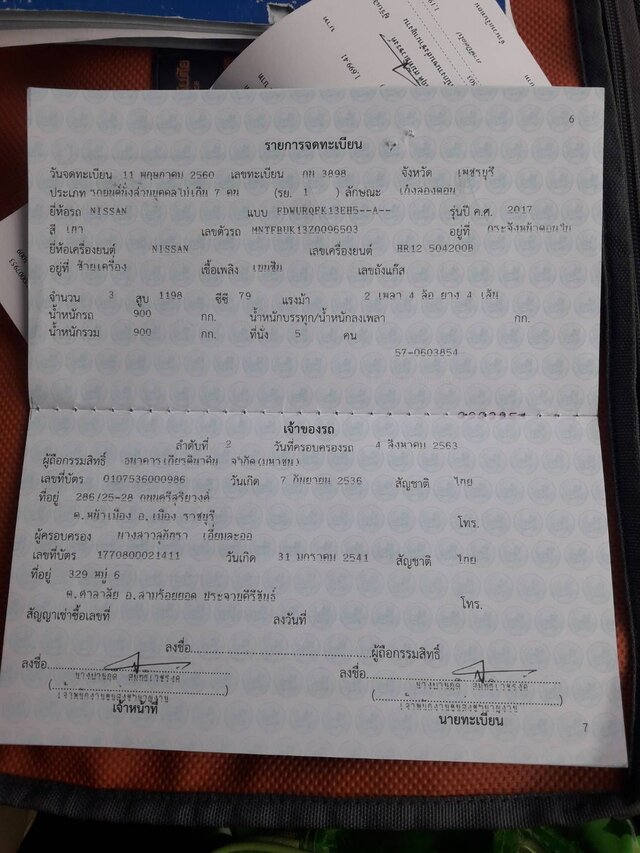 6
รายการจดทะเบียน
วันจดทะเบียน 11 พฤษภาคม 2560 เลขทะเบียน กน 3898 จังหวัด เพชรบุรี
ประเภท รถยนต์นั่งส่วนบุคคลไม่เกิน 7 คน (รย. 1 ) ลักษณะ เก๋งสองตอน
ยี่ห้อรถ NISSAN แบบ FDWURQFK13EH5--A-- รุ่นปี ค.ศ. 2017
สี เทา เลขตัวรถ MNTFBUK13Z0096503 อยู่ที่ กระจังหน้าตอนใน
ยี่ห้อเครื่องยนต์ NISSAN เลขเครื่องยนต์ HR12 504200B
อยู่ที่ ซ้ายเครื่อง เชื้อเพลิง เบนซิน เลขถังแก๊ส
จำนวน 3 สูบ 1198 ซีซี 79 แรงม้า 2 เพลา 4 ล้อ ยาง 4 เส้น
น้ำหนักรถ 900 กก. น้ำหนักบรรทุก/น้ำหนักลงเพลา กก.
น้ำหนักรวม 900 กก. ที่นั่ง 5 คน
57-0603854
เจ้าของรถ
ลำดับที่ 2 วันที่ครอบครองรถ 4 สิงหาคม 2563
ผู้ถือกรรมสิทธิ์ ธนาคารเกียรตินาคิน จำกัด(มหาชน)
เลขที่บัตร 0107536000986 วันเกิด 7 กันยายน 2536 สัญชาติ ไทย
ที่อยู่ 286/25-28 ถนนศรีสุริยวงศ์
ต.หน้าเมือง อ.เมือง ราชบุรี โทร.
ผู้ครอบครอง นางสาวสุภัทรา เอี่ยมละออ
เลขที่บัตร 1770800021411 วันเกิด 31 มกราคม 2541 สัญชาติ ไทย
ที่อยู่ 329 หมู่ 6
ต.ศาลาลัย อ.สามร้อยยอด ประจวบคีรีขันธ์ โทร.
สัญญาเช่าซื้อเลขที่ ลงวันที่
ลงชื่อ ผู้ถือกรรมสิทธิ์
ลงชื่อ ลงชื่อ
เจ้าหน้าที่ นายทะเบียน
7
1,699.41